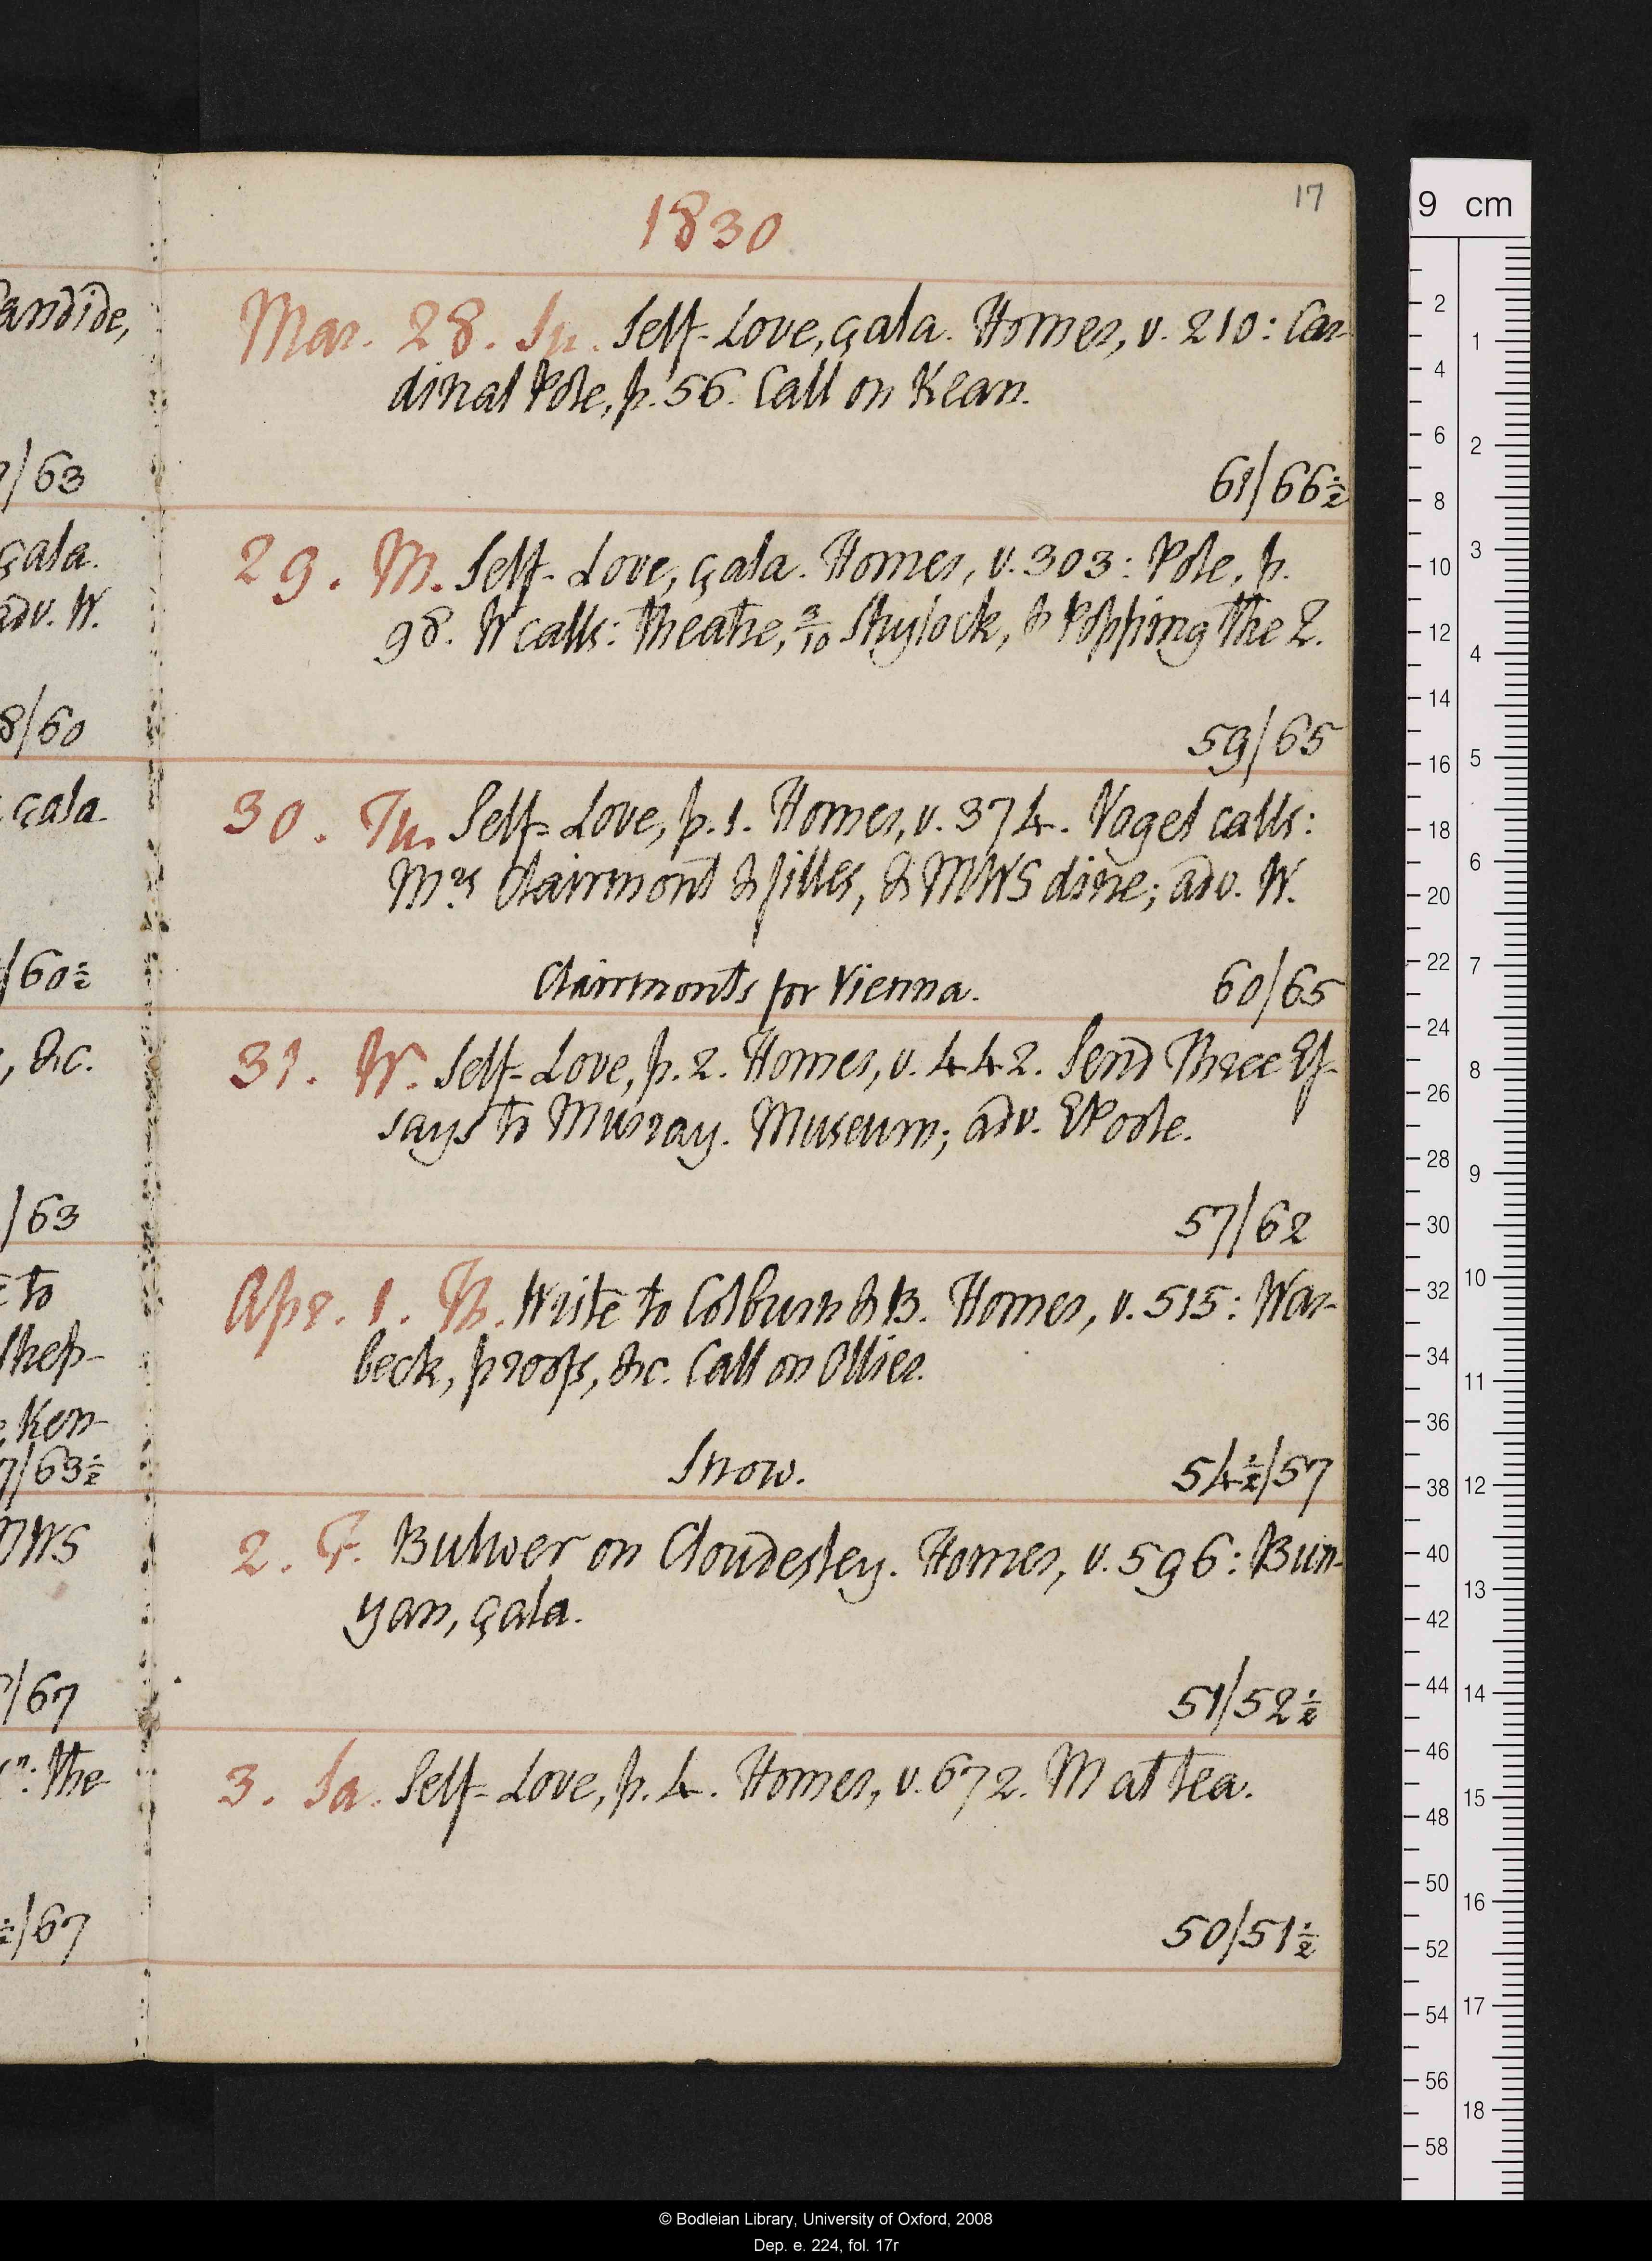 andide,
/63
çala.
adv. W.
8/60
çala.
/60½
, &c.
/63
to
Shep-
Ken-
7/63½
MWS
/67
: the
½/67
17
1830
Mar. 28. Su. Self-Love, çala. Homer, v. 210: Car-
dinal Pole, p. 56. Call on Kean.
61/66½
29. M. Self-Love, çala. Homer, v. 303: Pole, p.
98. W calls: theatre, 3/10 Shylock, & Popping the Q.
59/65
30. Tu. Self-Love, p. 1. Homer, v. 374. Vogel calls:
Mrs Clairmont & filles, & MWS dine; adv. W.
Clairmonts for Vienna. 60/65
31. W. Self-Love, p. 2. Homer, v. 442. Send Three Es-
says to Murray. Museum; adv. EPoole.
57/62
Apr. 1. Th. Write to Colburn & B. Homer, v. 515: War-
beck, proofs, &c. Call on Ollier.
Snow. 54½/57
2. F. Bulwer on Cloudesley. Homer, v. 596: Bun-
yan, çala.
51/52½
3. Sa. Self-Love, p. 4. Homer, v. 672. M at tea.
50/51½
9 cm
2
4
6
8
10
12
14
16
18
20
22
24
26
28
30
32
34
36
38
40
42
44
46
48
50
52
54
56
58
1
2
3
4
5
6
7
8
9
10
11
12
13
14
15
16
17
18
© Bodleian Library, University of Oxford, 2008
Dep. e. 224, fol. 17r